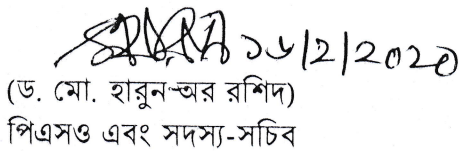 ১৬/২/২০২০
(ড. মো. হারুন-অর রশিদ)
পিএসও এবং সদস্য-সচিব